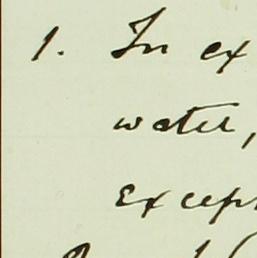 1. In ex
water,
excep